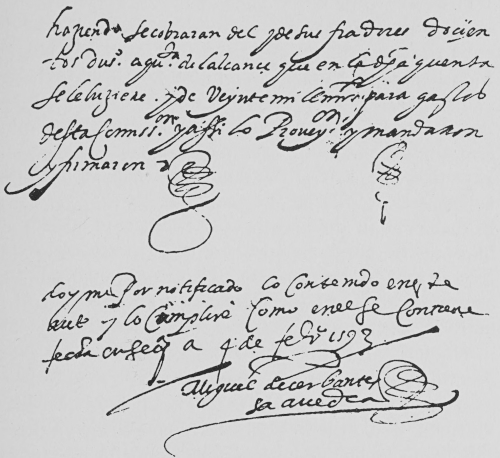 haziendo se cobraran del y de sus fiadores docien
tos du.s a qu.ta de la alcance que en la d.ha quenta
se le hiziere y de veynte mill mrs para gastos
desta comiss.on y assi lo Proveye.on y mandaron
y firmaron
doyme Por notificado lo contenido en este
auto y lo Cumplire Como en el se Contiene
fecha en a 4 de feb.o 1593
Miguel de cerbantes
saavedra